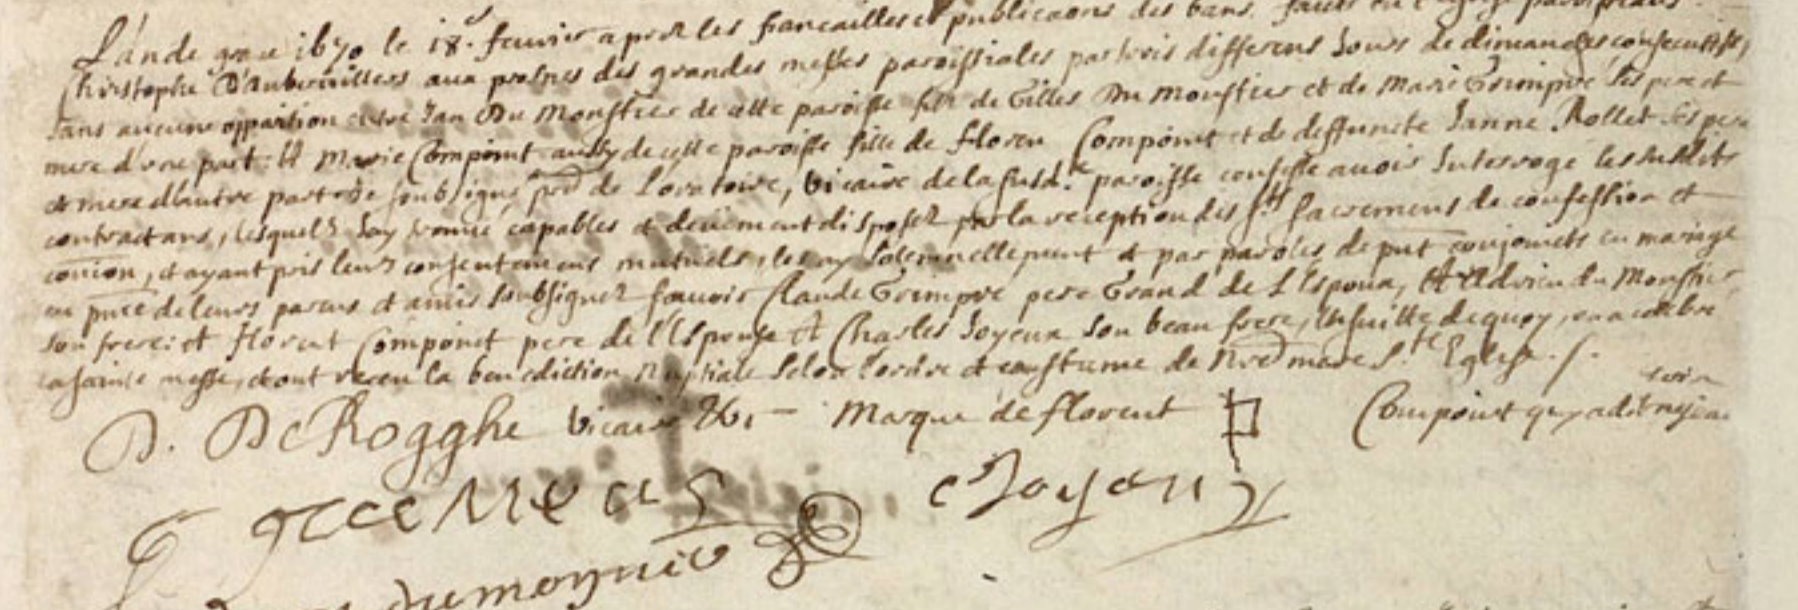 L'an de grace 1670 le 18.e feuvrier apres les fiancailles et publicaons des bans faicts en l'eglise paroissiale
Christophe D'auberuilliers aux prosnes des grandes messes paroissiales par trois differens Jours de dimanches consecutifs,
sans aucune opposition entre Jan Du Monstier de cette paroisse fils de Gilles Du monstier et de Marie Grimpré ses pere et
mere d'vne part: Et Marie Compoint aussy de cette paroisse fille de floren Compoint et de deffuncte Janne Rollet ses pere
et mere d'autre part Je soubsigné pre de Loratoire, vicaire de la susd.e paroisse confesse auoir Interrogé les susdits
contractans, lesquels Jay trouué capables et deüement disposez par la reception des sts sacremens de confession et
conion, et ayant pris leurs consentemens mutuels, les ay solemnellement et par paroles de pnt conjoincts en mariage
en pnce de leurs parens et amis soubsignez scauoir Claude Grimpré pere Grand de L'Espoux, Et Adrien du Monstier
son frere: et florent Compoint pere de l'Espouse Et Charles Joyeux son beau frere, Ensuitte dequoy, on a celebré
la sainte messe, et ont receu la benediction nuptiale selon l'ordre et coustume de Nre mere Ste Eglise. /.
D. De Rogghe vicaire Marque de florent Compoint qui a dit ne
C Joyeux
du monstie